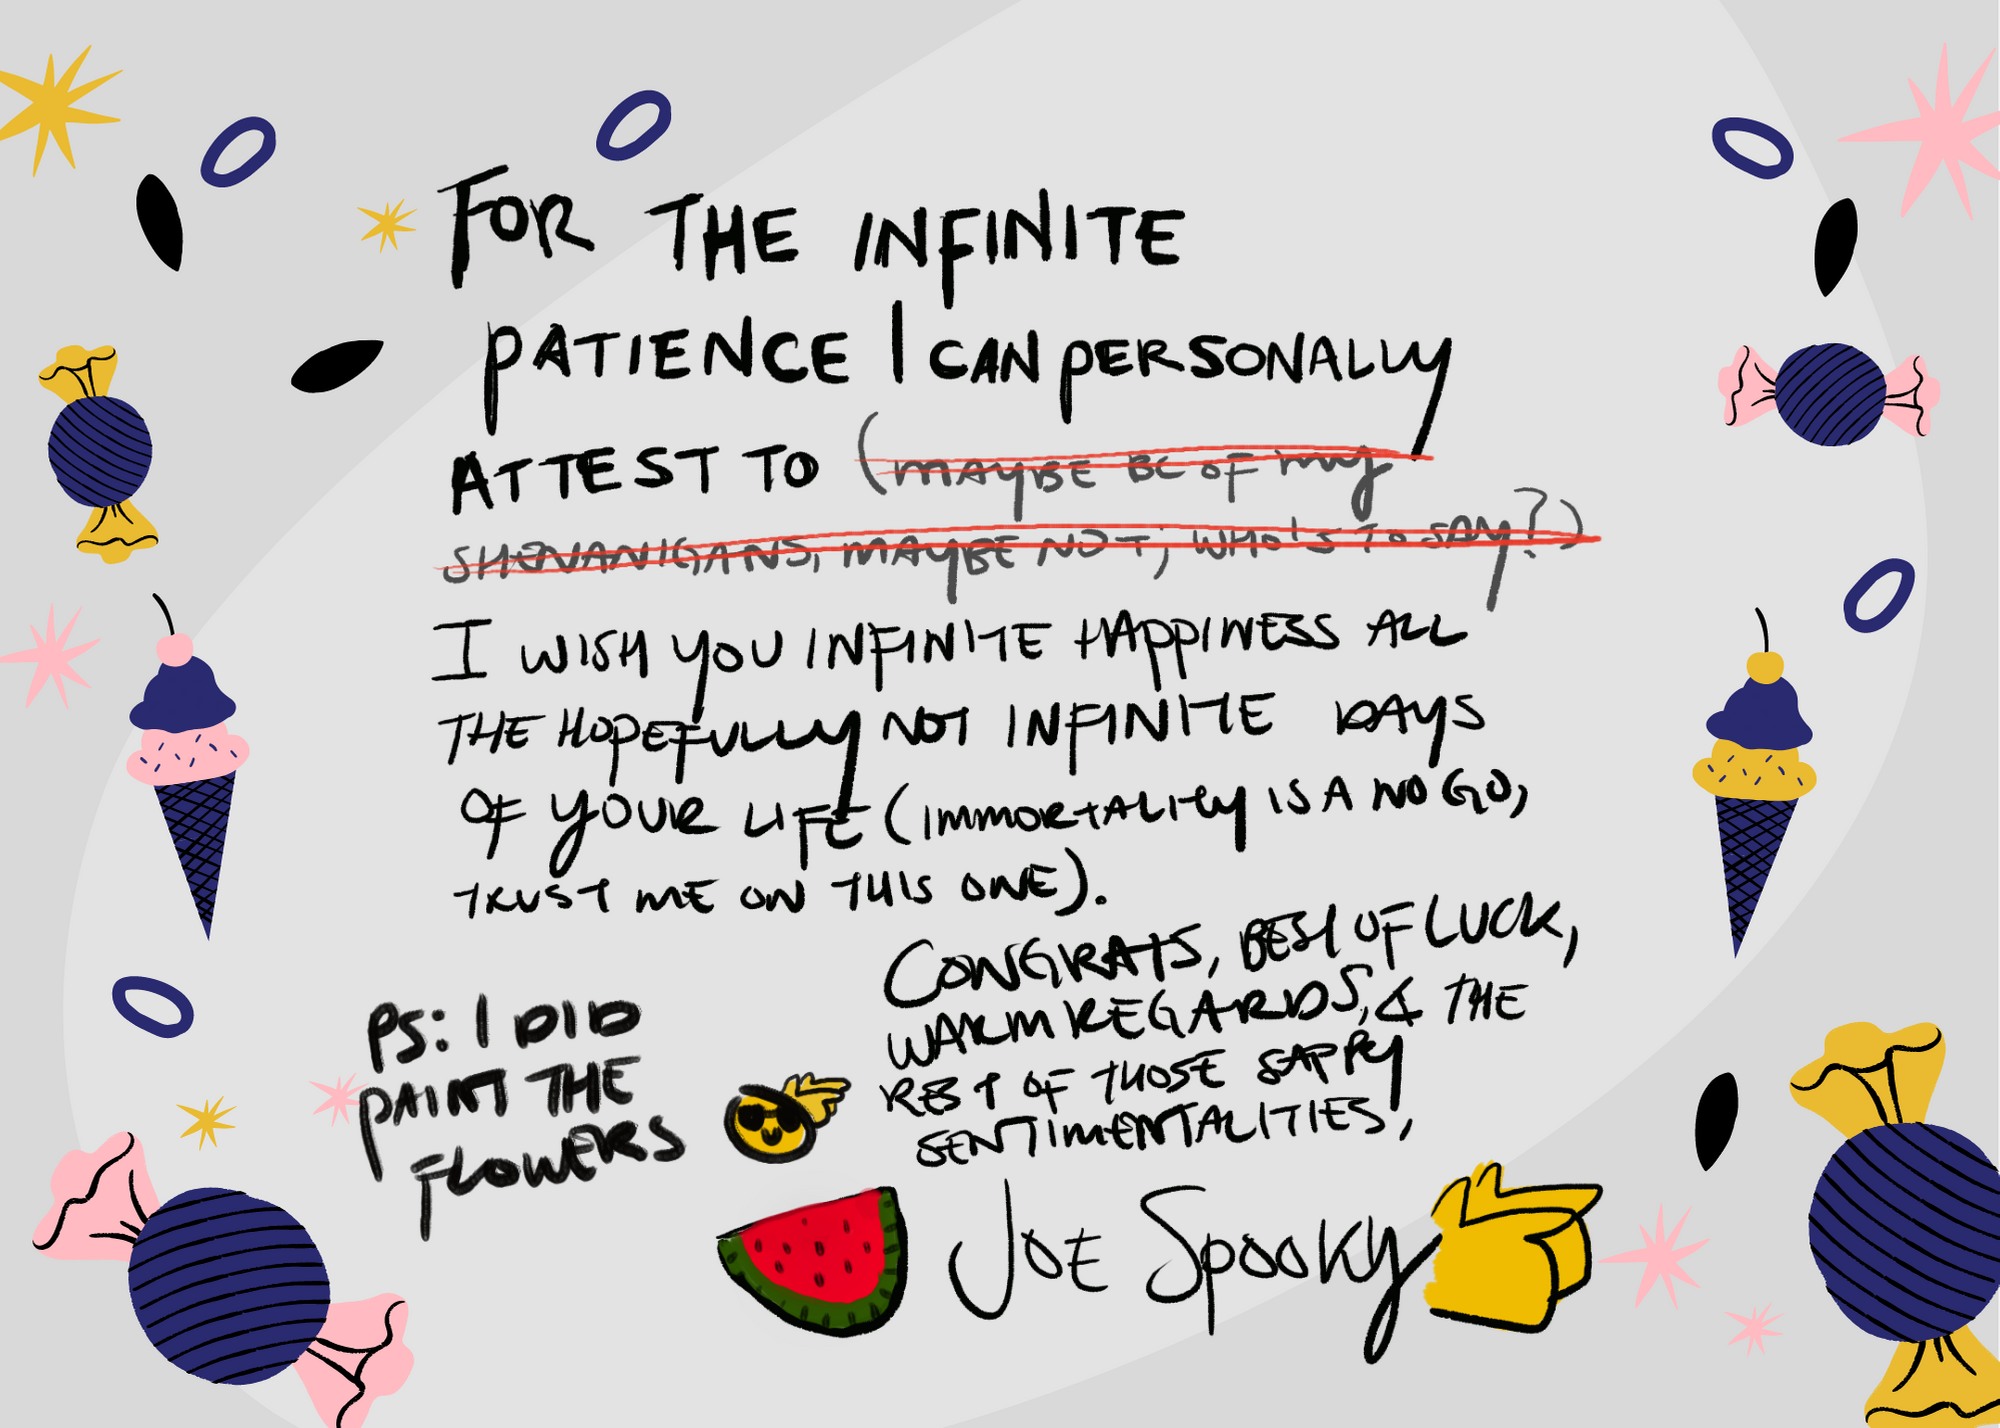 FOR THE INFINITE
PATIENCE I CAN PERSONALLY
ATTEST TO (MAYBE BC OF MY
SHENANIGANS, MAYBE NOT; WHO'S TO SAY?)
I WISH YOU INFINITE HAPPINESS ALL
THE HOPEFULLY NOT INFINITE DAYS
OF YOUR LIFE (IMMORTALITY IS A NO GO,
TRUST ME ON THIS ONE).
CONGRATS, BEST OF LUCK,
WARM REGARDS, & THE
REST OF THOSE SAPPY
SENTIMENTALITIES,
JOE SPOOKY
PS: I DID
PAINT THE
FLOWERS